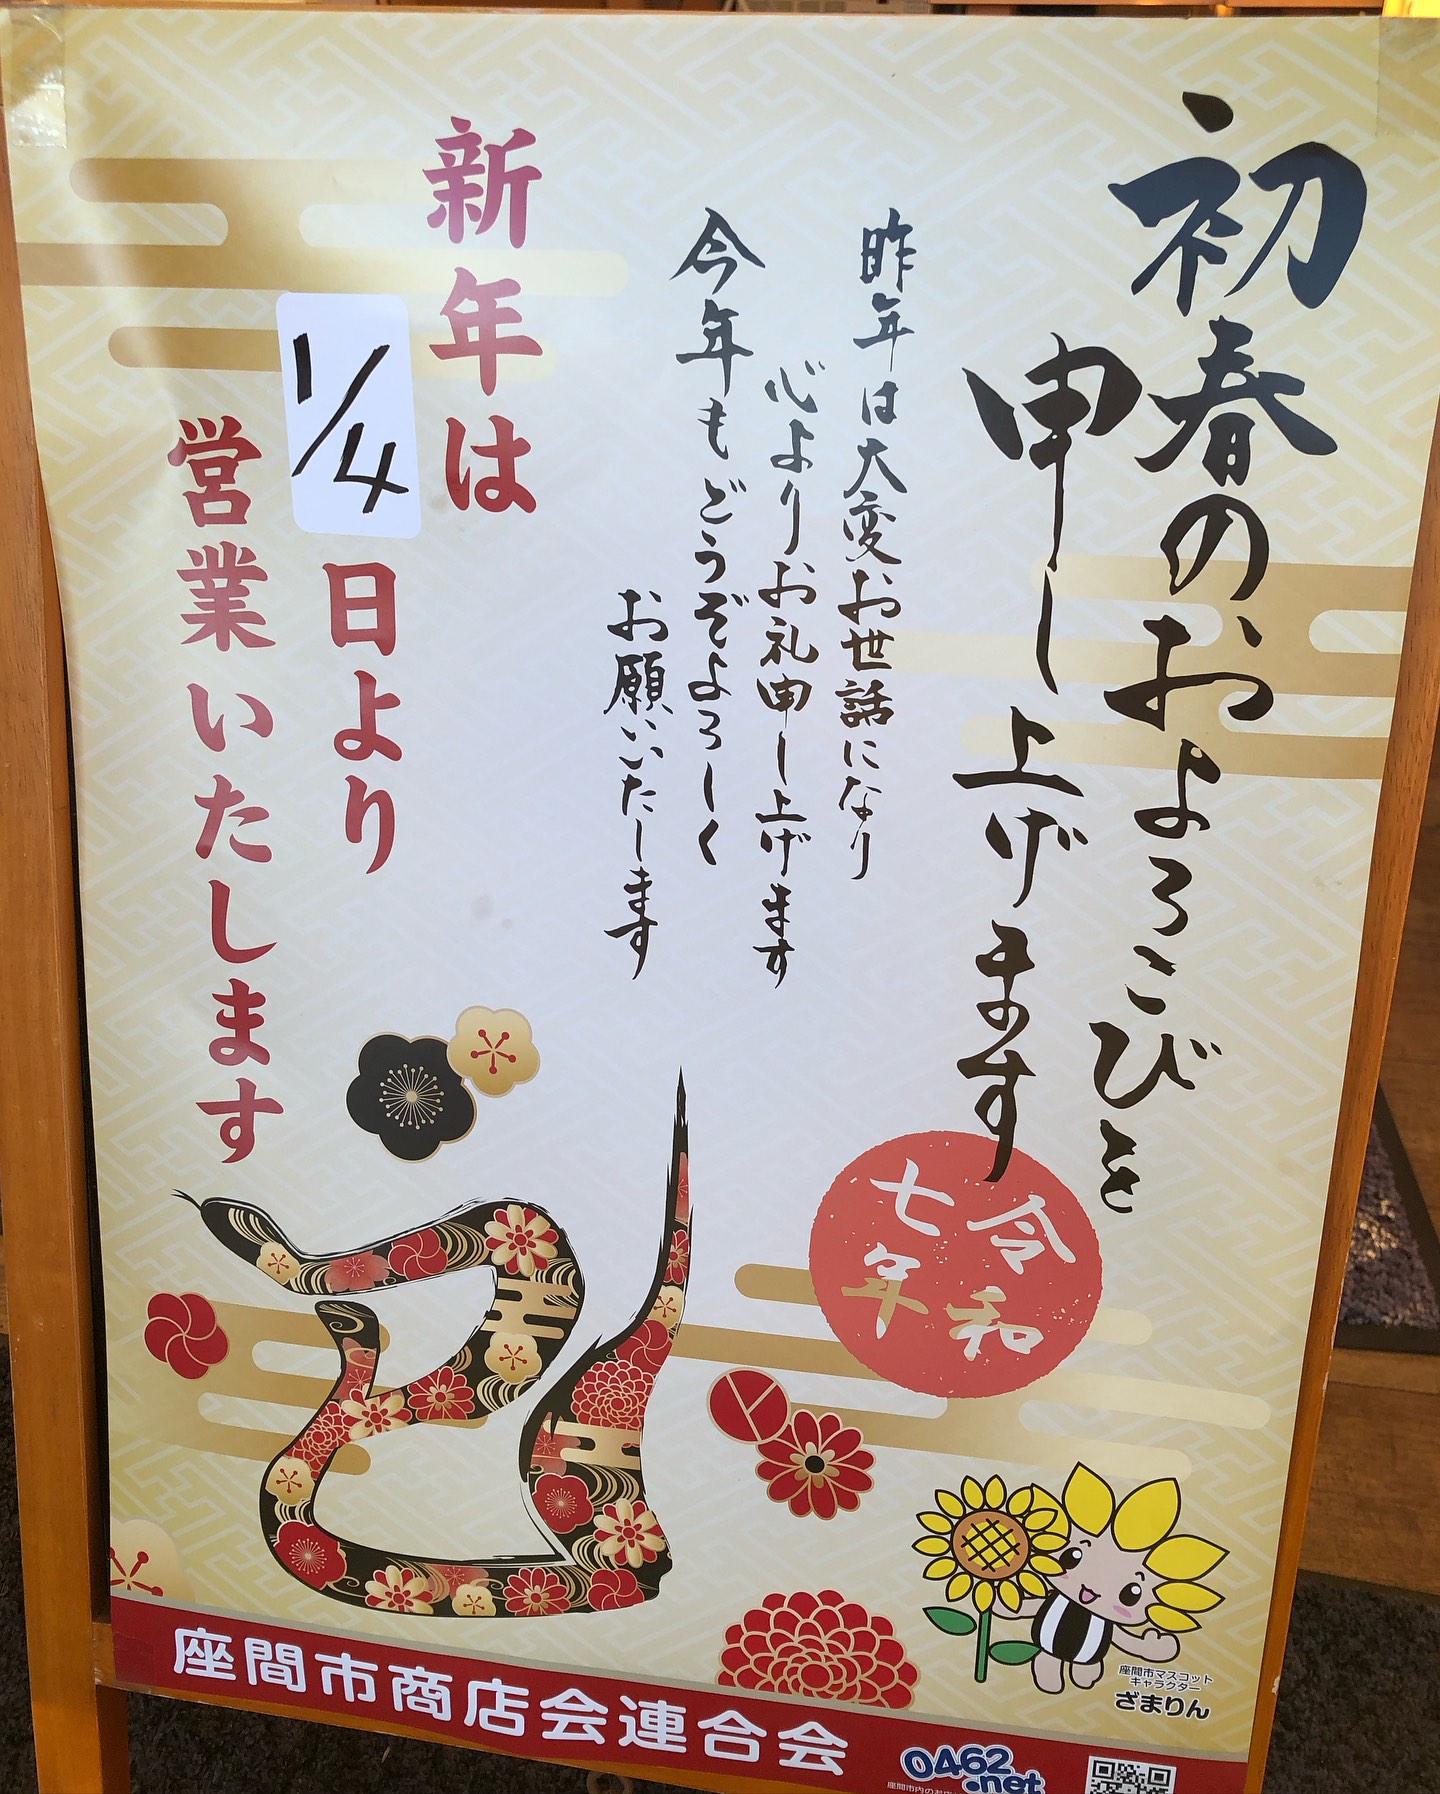 初春のおよろこびを
申し上げます
昨年は大変お世話になり
心よりお礼申し上げます
今年もどうぞよろしく
お願いいたします
新年は
1/4日より
営業いたします
令和
七年
座間市マスコット
キャラクター
ざまりん
座間市商店会連合会
0462.net